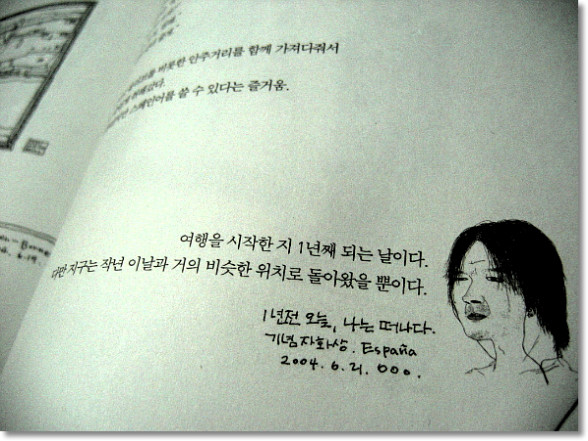 비롯한 안주거리를 함께 가져다줘서
취해갔다.
스페인어를 쓸 수 있다는 즐거움.
여행을 시작한 지 1년째 되는 날이다.
다만 지구는 작년 이날과 거의 비슷한 위치로 돌아왔을 뿐이다.
1년전 오늘, 나는 떠나다.
기념자화상. España
2004. 6. 21. 000.